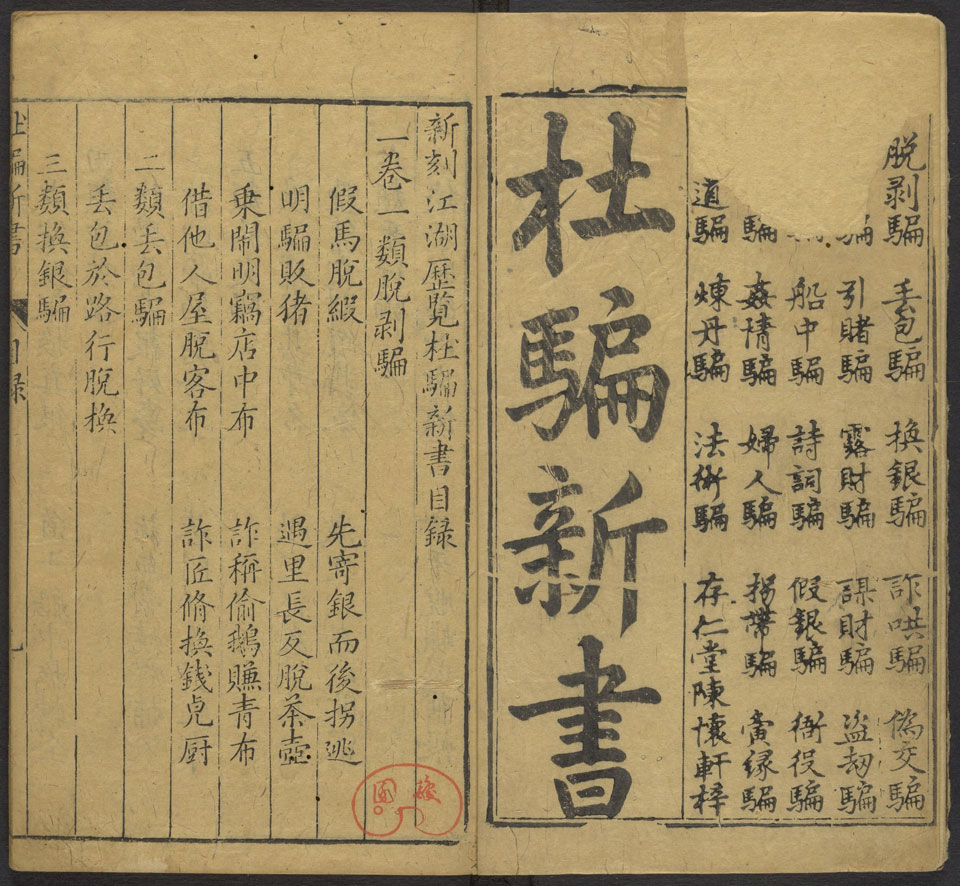 脱剥騙 丟包騙 換銀騙 詐哄騙 偽交騙
騙 引賭騙 露財騙 謀財騙 盜劫騙
船中騙 詩詞騙 假銀騙 衙役騙
騙 姦情騙 婦人騙 拐帶騙 夤緣騙
道騙 煉丹騙 法術騙 存仁堂陳懷軒梓
杜騙新書
新刻江湖歷覽杜騙新書目錄
一卷 一類脫剥騙
假馬脫緞 先寄銀而後拐逃
明騙販猪 遇里長反脫茶壺
乗閙明竊店中布 詐稱偷鵝賺青布
借他人屋脫客布 詐匠脩換錢卓厨
二類丟包騙
丟包於路行脫換
三類換銀騙
杜騙新書 目録 一